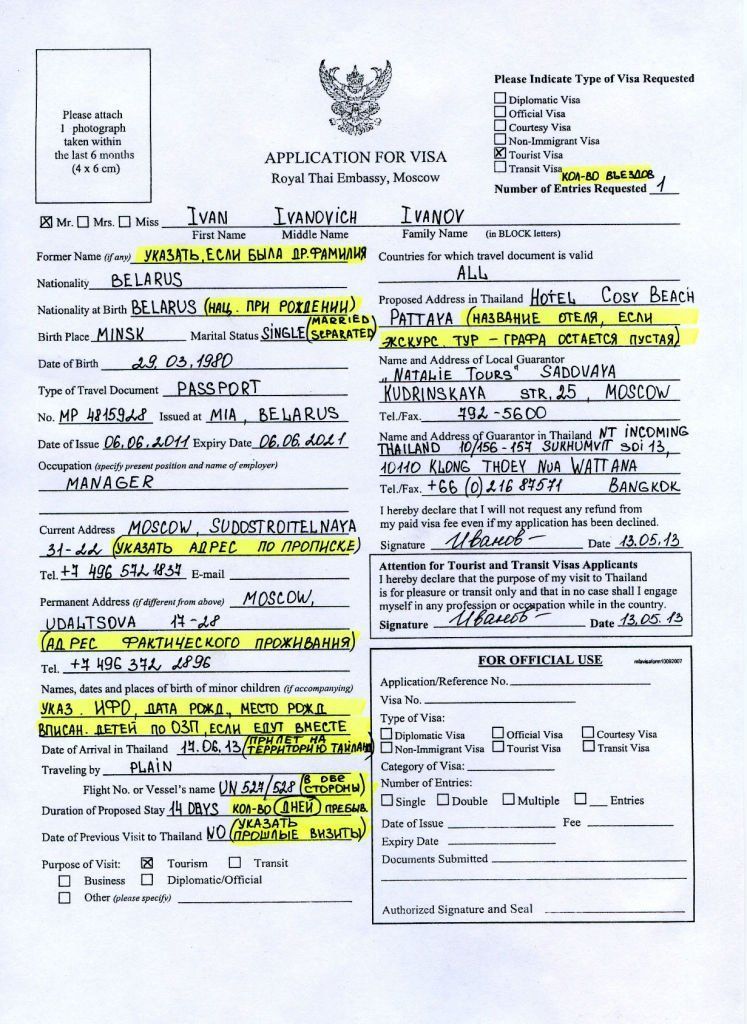 Please attach
1 photograph
taken within
the last 6 months
(4 x 6 cm)
APPLICATION FOR VISA
Royal Thai Embassy, Moscow
Please Indicate Type of Visa Requested
Diplomatic Visa
Official Visa
Courtesy Visa
Non-Immigrant Visa
Tourist Visa
Transit Visa
КОЛ-ВО ВЪЕЗДОВ
Number of Entries Requested 1
Mr. Mrs. Miss IVAN IVANOVICH IVANOV
First Name Middle Name Family Name (in BLOCK letters)
Former Name (if any) УКАЗАТЬ, ЕСЛИ БЫЛА ДР. ФАМИЛИЯ
Nationality BELARUS
Nationality at Birth BELARUS (НАЦ. ПРИ РОЖДЕНИИ)
Birth Place MINSK Marital Status SINGLE (MARRIED SEPARATED)
Date of Birth 29.03.1980
Type of Travel Document PASSPORT
No. MP 4815928 Issued at MIA, BELARUS
Date of Issue 06.06.2011 Expiry Date 06.06.2021
Occupation (specify present position and name of employer)
MANAGER
Current Address MOSCOW, SUDOSTROITELNAYA
31-22 (УКАЗАТЬ АДРЕС ПО ПРОПИСКЕ)
Tel. +7 496 572 1837 E-mail
Permanent Address (if different from above) MOSCOW,
UDALTSOVA 17-28
(АДРЕС ФАКТИЧЕСКОГО ПРОЖИВАНИЯ)
Tel. +7 496 372 2896
Names, dates and places of birth of minor children (if accompanying)
УКАЗ. ИФО, ДАТА РОЖД., МЕСТО РОЖД
ВПИСАН. ДЕТЕЙ ПО ОЗП, ЕСЛИ ЕДУТ ВМЕСТЕ
Date of Arrival in Thailand 17.06.13 (ПРИЛЕТ НА ТЕРРИТОРИЮ ТАИЛАНД
Traveling by PLAIN
Flight No. or Vessel's name UN 527/528 (В ОБЕ СТОРОНЫ)
Duration of Proposed Stay 14 DAYS КОЛ-ВО (ДНЕЙ) ПРЕБЫВ.
Date of Previous Visit to Thailand NO (УКАЗАТЬ ПРОШЛЫЕ ВИЗИТЫ)
Purpose of Visit: Tourism Transit
Business Diplomatic/Official
Other (please specify)
Countries for which travel document is valid
ALL
Proposed Address in Thailand HOTEL COSY BEACH
PATTAYA (НАЗВАНИЕ ОТЕЛЯ, ЕСЛИ
ЭКСКУРС. ТУР - ГРАФА ОСТАЕТСЯ ПУСТАЯ)
Name and Address of Local Guarantor
„NATALIE TOURS" SADOVAYA
KUDRINSKAYA STR, 25, MOSCOW
Tel./Fax. 792-5600
Name and Address of Guarantor in Thailand NT INCOMING
THAILAND 10/156-157 SUKHUMVIT SOI 13,
10110 KLONG THOEY NUA WATTANA
Tel./Fax. +66 (0) 216 87571 BANGKOK
I hereby declare that I will not request any refund from
my paid visa fee even if my application has been declined.
Signature Иванов Date 13.05.13
Attention for Tourist and Transit Visas Applicants
I hereby declare that the purpose of my visit to Thailand
is for pleasure or transit only and that in no case shall I engage
myself in any profession or occupation while in the country.
Signature Иванов Date 13.05.13
FOR OFFICIAL USE mfavisaform10092007
Application/Reference No.
Visa No.
Type of Visa:
Diplomatic Visa Official Visa Courtesy Visa
Non-Immigrant Visa Tourist Visa Transit Visa
Category of Visa:
Number of Entries:
Single Double Multiple Entries
Date of Issue Fee
Expiry Date
Documents Submitted
Authorized Signature and Seal